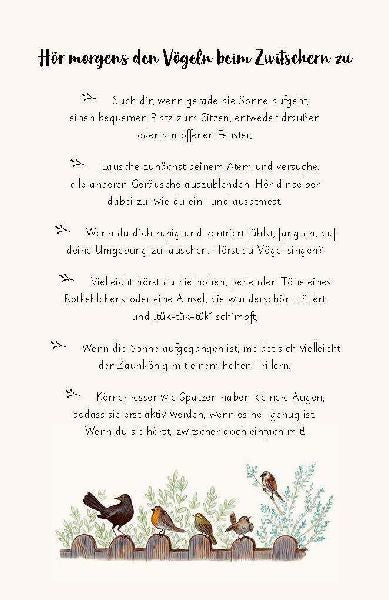 Hör morgens den Vögeln beim Zwitschern zu
Such dir, wenn gerade die Sonne aufgeht,
einen bequemen Platz zum Sitzen, entweder draußen
oder am offenen Fenster.
Lausche zunächst deinem Atem und versuche,
alle anderen Geräusche auszublenden. Hör dir selber
dabei zu, wie du ein- und ausatmest.
Wenn du dich ruhig und zentriert fühlst, fang an, auf
deine Umgebung zu lauschen. Hörst du Vögel singen?
Vielleicht hörst du die hohen, perlenden Töne eines
Rotkehlchens oder eine Amsel, die wunderschön flötet
und „tük-tük-tük" schimpft.
Wenn die Sonne aufgegangen ist, meldet sich vielleicht
der Zaunkönig mit einem hohen Trillern.
Körnerfresser wie Spatzen haben kleinere Augen,
sodass sie erst aktiv werden, wenn es hell genug ist.
Wenn du sie hörst, zwitscher doch einfach mit!